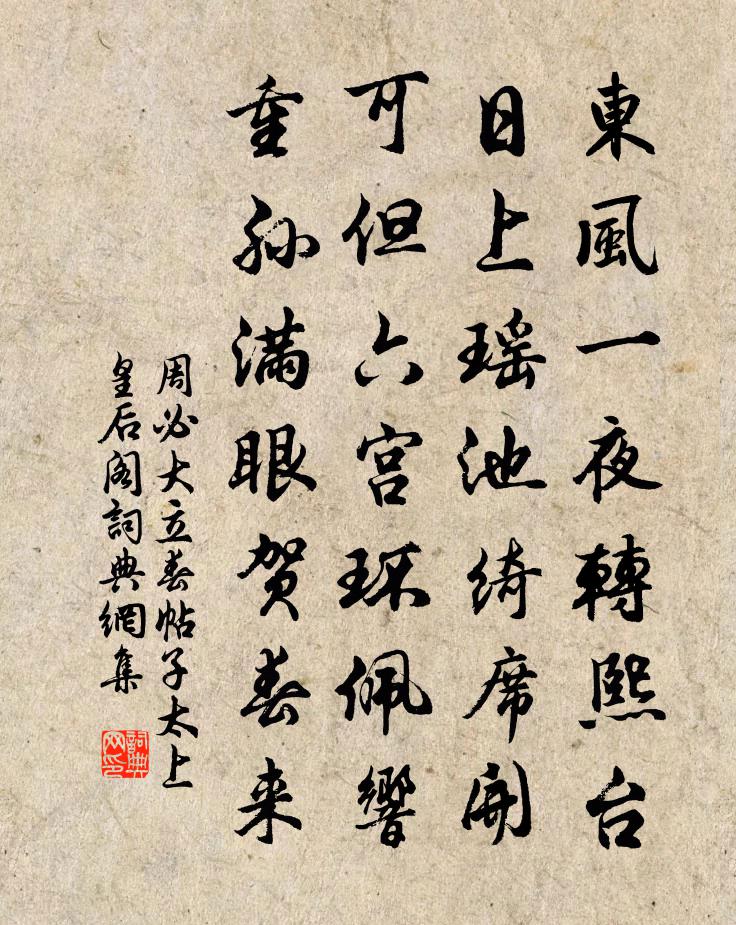 東風一夜轉熙台
日上瑶池綺席開
可但六宫环佩響
重孙满眼贺春来
周必大立春帖子太上
皇后阁詞典網集
詞典
网印